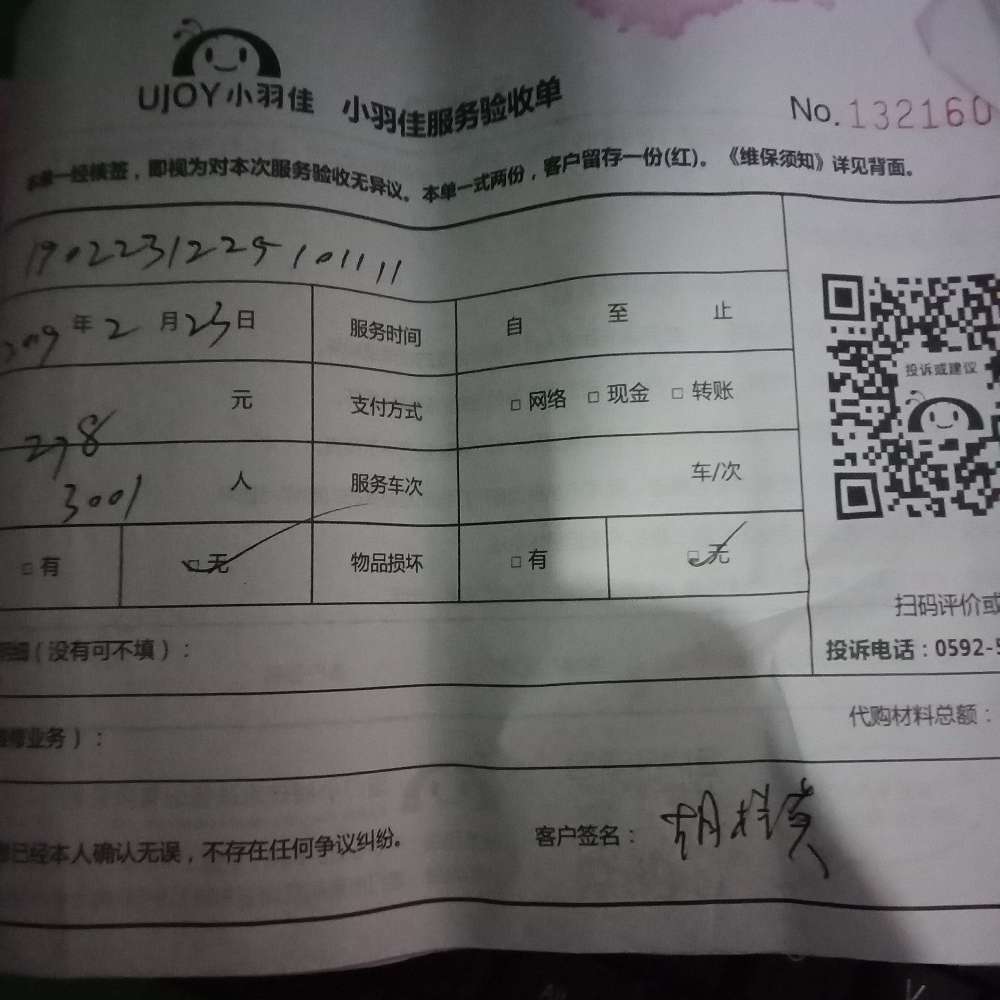 UJOY小羽佳 小羽佳服务验收单 No.132160
本单一经核签，即视为对本次服务验收无异议。本单一式两份，客户留存一份(红)。《维保须知》详见背面。
1902231225101111
2019年2月23日 服务时间 自 至 止
278元 支付方式 □网络 □现金 □转账
3001人 服务车次 车/次
□有 □无 物品损坏 □有 □无
投诉或建议
扫码评价或
投诉电话：0592-5
明细(没有可不填)：
代购材料总额：
业务)：
已经本人确认无误，不存在任何争议纠纷。 客户签名：